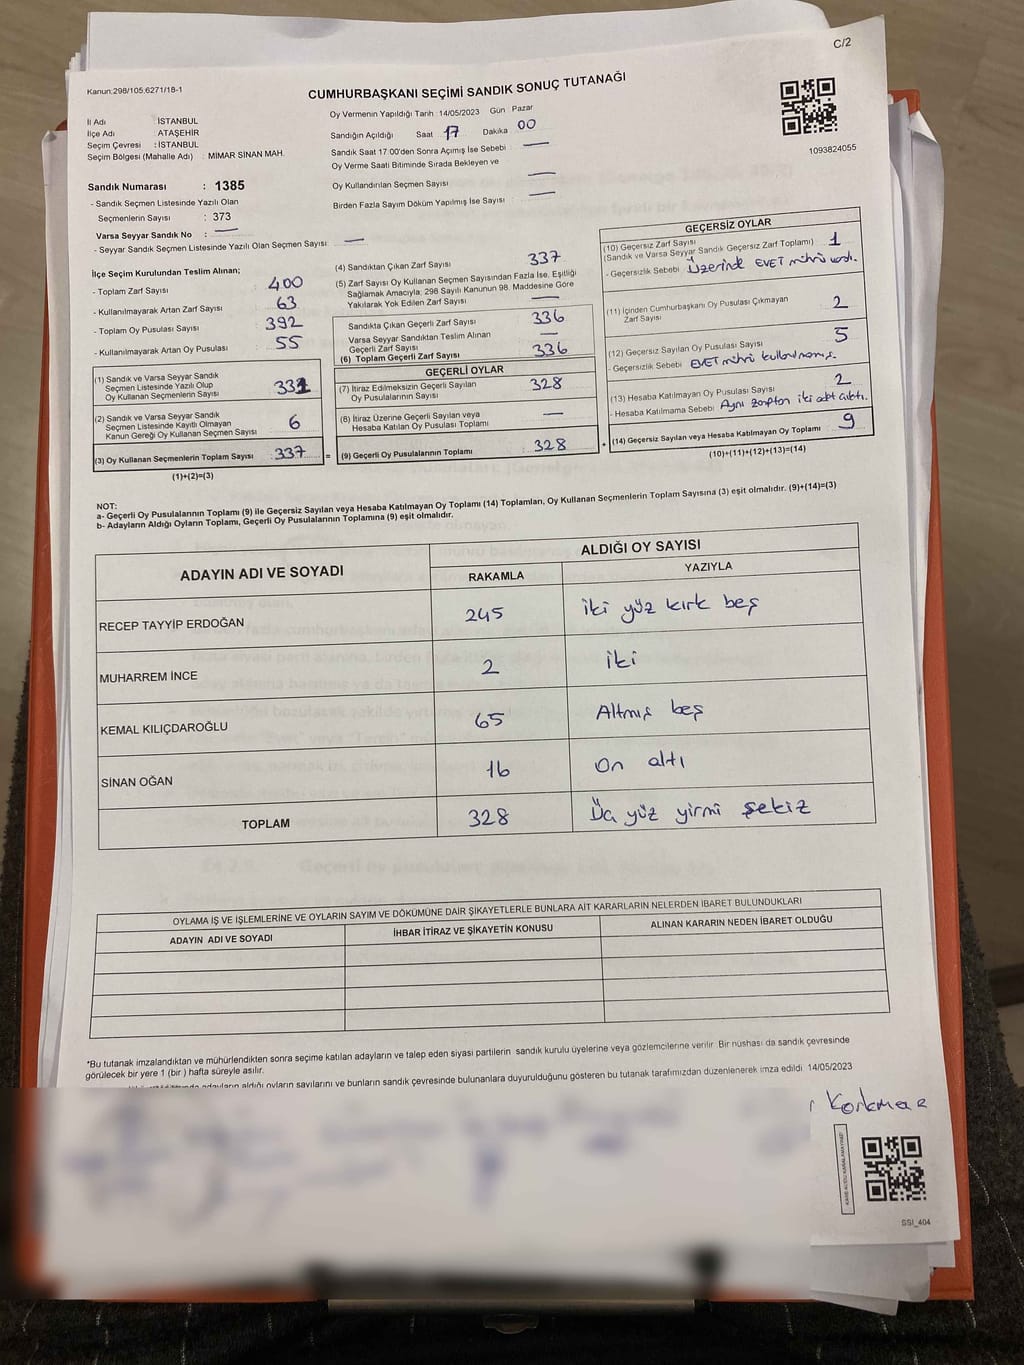 C/2
Kanun:298/105.6271/18-1
CUMHURBAŞKANI SEÇİMİ SANDIK SONUÇ TUTANAĞI
İl Adı : İSTANBUL
İlçe Adı : ATAŞEHİR
Seçim Çevresi : İSTANBUL
Seçim Bölgesi (Mahalle Adı) : MİMAR SİNAN MAH.
Oy Vermenin Yapıldığı Tarih :14/05/2023 Gün Pazar
Sandığın Açıldığı Saat 17 Dakika 00
Sandık Saat 17:00'den Sonra Açılmış İse Sebebi : —
Oy Verme Saati Bitiminde Sırada Bekleyen ve
Oy Kullandırılan Seçmen Sayısı —
Birden Fazla Sayım Döküm Yapılmış İse Sayısı —
1093824055
Sandık Numarası : 1385
- Sandık Seçmen Listesinde Yazılı Olan
Seçmenlerin Sayısı : 373
Varsa Seyyar Sandık No : —
- Seyyar Sandık Seçmen Listesinde Yazılı Olan Seçmen Sayısı: —
İlçe Seçim Kurulundan Teslim Alınan;
- Toplam Zarf Sayısı : 400
- Kullanılmayarak Artan Zarf Sayısı : 63
- Toplam Oy Pusulası Sayısı : 392
- Kullanılmayarak Artan Oy Pusulası : 55
(1) Sandık ve Varsa Seyyar Sandık
Seçmen Listesinde Yazılı Olup
Oy Kullanan Seçmenlerin Sayısı : 331
(2) Sandık ve Varsa Seyyar Sandık
Seçmen Listesinde Kayıtlı Olmayan
Kanun Gereği Oy Kullanan Seçmen Sayısı : 6
(3) Oy Kullanan Seçmenlerin Toplam Sayısı : 337 =
(1)+(2)=(3)
(4) Sandıktan Çıkan Zarf Sayısı : 337
(5) Zarf Sayısı Oy Kullanan Seçmen Sayısından Fazla İse, Eşitliği
Sağlamak Amacıyla, 298 Sayılı Kanunun 98. Maddesine Göre
Yakılarak Yok Edilen Zarf Sayısı : —
Sandıkta Çıkan Geçerli Zarf Sayısı : 336
Varsa Seyyar Sandıktan Teslim Alınan
Geçerli Zarf Sayısı : —
(6) Toplam Geçerli Zarf Sayısı : 336
GEÇERLİ OYLAR
(7) İtiraz Edilmeksizin Geçerli Sayılan
Oy Pusulalarının Sayısı : 328
(8) İtiraz Üzerine Geçerli Sayılan veya
Hesaba Katılan Oy Pusulası Toplamı : —
(9) Geçerli Oy Pusulalarının Toplamı : 328 +
GEÇERSİZ OYLAR
(10) Geçersiz Zarf Sayısı
(Sandık ve Varsa Seyyar Sandık Geçersiz Zarf Toplamı) : 1
- Geçersizlik Sebebi : Üzerinde EVET mührü vardı.
(11) İçinden Cumhurbaşkanı Oy Pusulası Çıkmayan
Zarf Sayısı 2
(12) Geçersiz Sayılan Oy Pusulası Sayısı 5
- Geçersizlik Sebebi : EVET mührü kullanılmamış.
(13) Hesaba Katılmayan Oy Pusulası Sayısı 2
- Hesaba Katılmama Sebebi : Aynı zarftan iki adt çıktı.
(14) Geçersiz Sayılan veya Hesaba Katılmayan Oy Toplamı : 9
(10)+(11)+(12)+(13)=(14)
NOT:
a- Geçerli Oy Pusulalarının Toplamı (9) ile Geçersiz Sayılan veya Hesaba Katılmayan Oy Toplamı (14) Toplamları, Oy Kullanan Seçmenlerin Toplam Sayısına (3) eşit olmalıdır. (9)+(14)=(3)
b- Adayların Aldığı Oyların Toplamı, Geçerli Oy Pusulalarının Toplamına (9) eşit olmalıdır.
ADAYIN ADI VE SOYADI ALDIĞI OY SAYISI
RAKAMLA YAZIYLA
RECEP TAYYİP ERDOĞAN 245 iki yüz kırk beş
MUHARREM İNCE 2 iki
KEMAL KILIÇDAROĞLU 65 Altmış beş
SİNAN OĞAN 16 on altı
TOPLAM 328 Üç yüz yirmi şekiz
OYLAMA İŞ VE İŞLEMLERİNE VE OYLARIN SAYIM VE DÖKÜMÜNE DAİR ŞİKAYETLERLE BUNLARA AİT KARARLARIN NELERDEN İBARET BULUNDUKLARI
ADAYIN ADI VE SOYADI İHBAR İTİRAZ VE ŞİKAYETİN KONUSU ALINAN KARARIN NEDEN İBARET OLDUĞU
*Bu tutanak imzalandıktan ve mühürlendikten sonra seçime katılan adayların ve talep eden siyasi partilerin sandık kurulu üyelerine veya gözlemcilerine verilir. Bir nüshası da sandık çevresinde
görülecek bir yere 1 (bir ) hafta süreyle asılır.
adayların aldığı oyların sayılarını ve bunların sandık çevresinde bulunanlara duyurulduğunu gösteren bu tutanak tarafımızdan düzenlenerek imza edildi. 14/05/2023
Korkmaz
KARE KODU KARALAMAYINIZ!
SSI_404